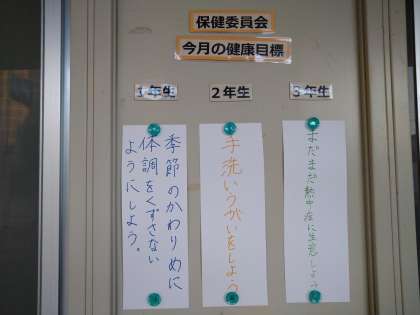 保健委員会
今月の健康目標
1年生
2年生
3年生
季節のかわりめに
体調をくずさない
ようにしよう。
手洗いうがいをしよう
まだまだ熱中症に注意しよう